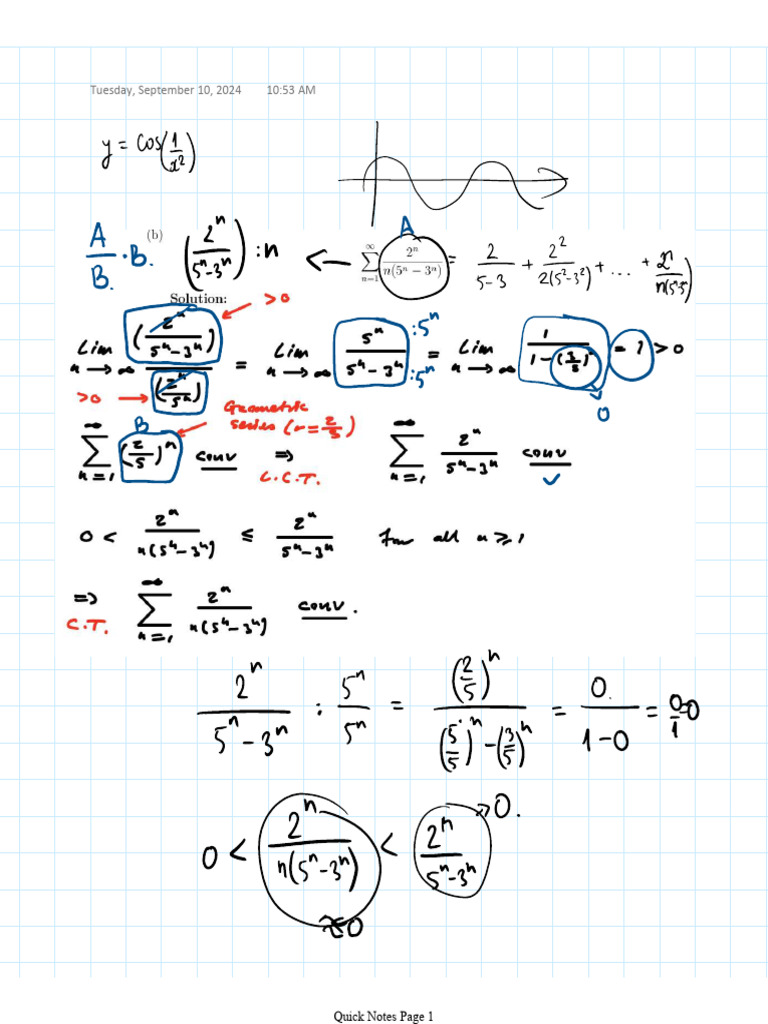 Tuesday, September 10, 2024 10:53 AM
y = cos(1/x²)
A
A/B · B. (b) (2ⁿ/(5ⁿ−3ⁿ)) : n ← ∑_{n=1}^{∞} 2ⁿ/(n(5ⁿ − 3ⁿ)) = 2/(5−3) + 2²/(2(5²−3²)) + ... + 2ⁿ/(n(5ⁿ-3ⁿ))
Solution: >0
Lim_{n→∞} (2ⁿ/(5ⁿ−3ⁿ))/(2ⁿ/5ⁿ) = Lim_{n→∞} 5ⁿ/(5ⁿ−3ⁿ) :5ⁿ :5ⁿ = Lim_{n→∞} 1/(1−(3/5)ⁿ) = 1 > 0
>0 → 0
B Geometric series (r=2/5)
∑_{n=1}^{∞} (2/5)ⁿ conv ⇒ ∑_{n=1}^{∞} 2ⁿ/(5ⁿ−3ⁿ) conv
L.C.T.
0 < 2ⁿ/(n(5ⁿ−3ⁿ)) ≤ 2ⁿ/(5ⁿ−3ⁿ) for all n ≥ 1
⇒ ∑_{n=1}^{∞} 2ⁿ/(n(5ⁿ−3ⁿ)) conv.
C.T.
2ⁿ/(5ⁿ−3ⁿ) : 5ⁿ/5ⁿ = (2/5)ⁿ/((5/5)ⁿ−(3/5)ⁿ) = 0/(1−0) = 0/1 = 0
0 < 2ⁿ/(n(5ⁿ−3ⁿ)) < 2ⁿ/(5ⁿ−3ⁿ) → 0.
→0
Quick Notes Page 1